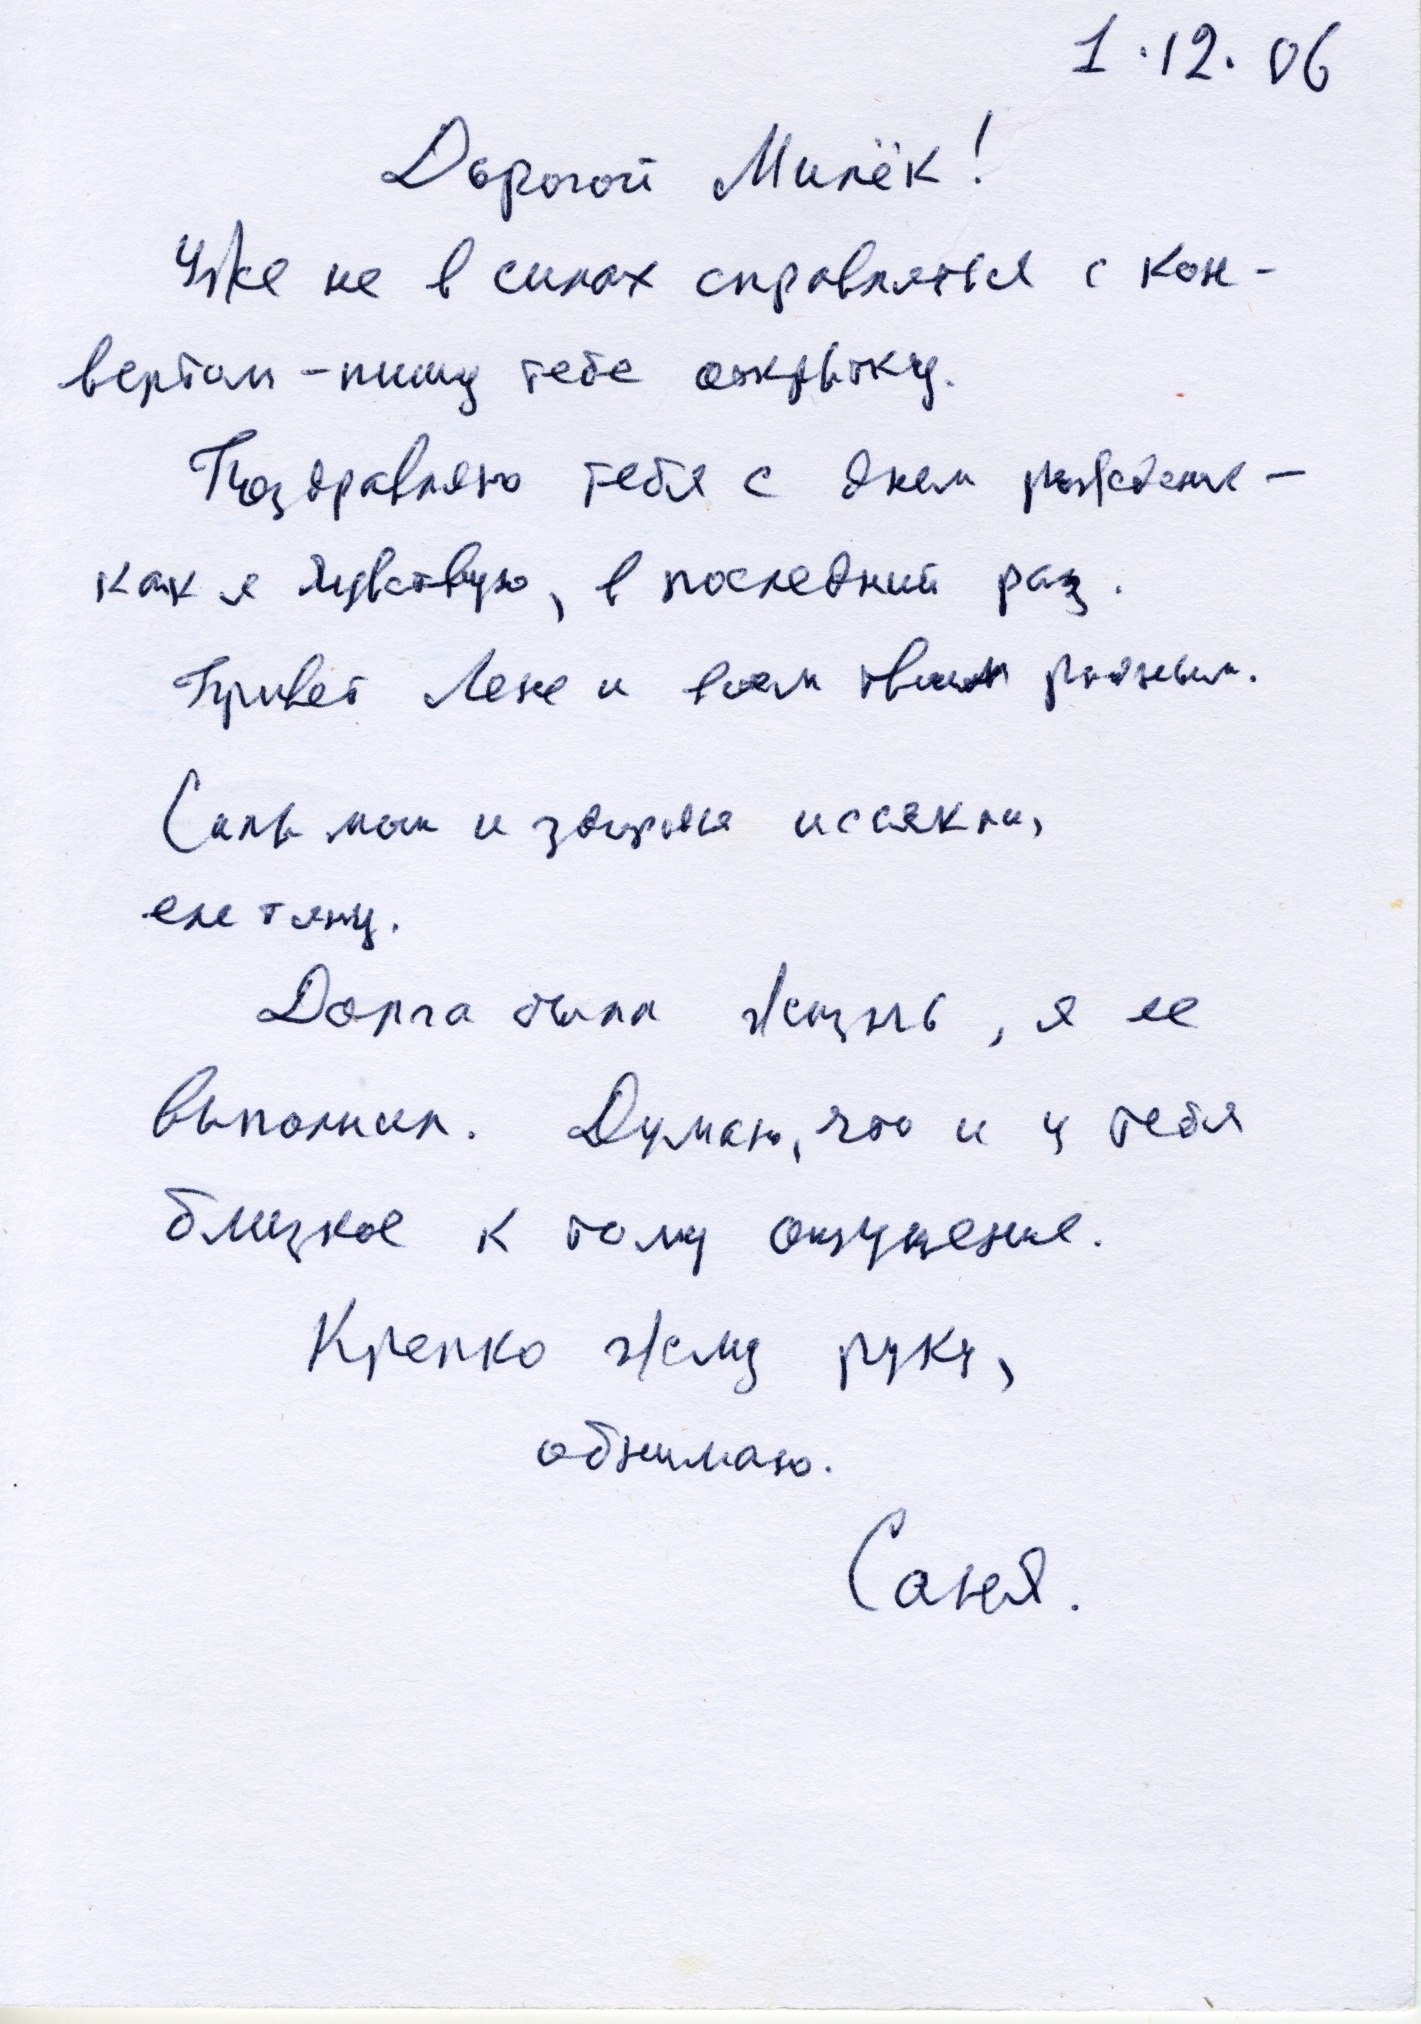 1.12.06
Дорогой Милёк!
Уже не в силах справляться с кон-
вертом – пишу тебе открытку.
Поздравляю тебя с днем рождения –
как я чувствую, в последний раз.
Привет Лене и всем твоим родным.
Силы мои и здоровья иссякли,
еле тяну.
Долга была жизнь, я ее
выполнил. Думаю, что и у тебя
близкое к тому ощущение.
Крепко жму руку,
обнимаю.
Саня.